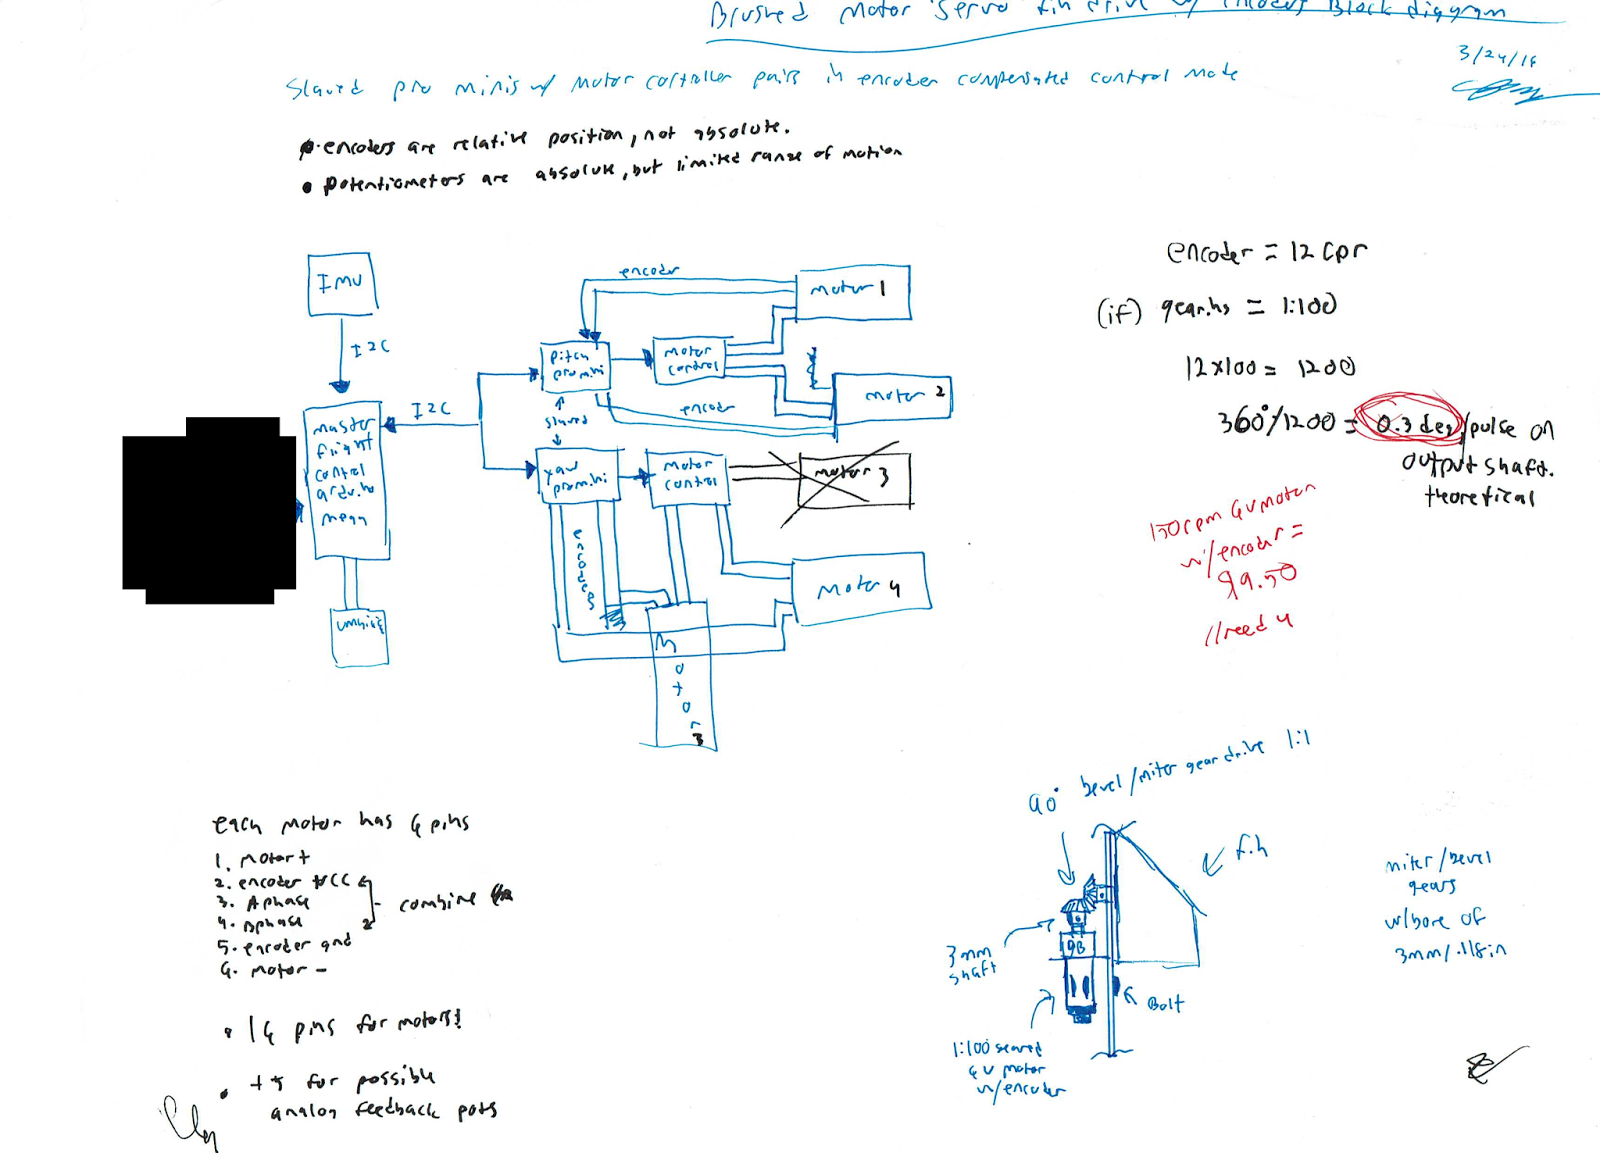 Brushed Motor Servo fin drive w/ encoders Block diagram
3/24/16
Slaved pro minis w/ Motor controller pairs in encoder compensated control mode
• encoders are relative position, not absolute.
• Potentiometers are absolute, but limited range of motion
IMU
I2C
I2C
master
flight
control
arduino
mega
umbilic
encoder
pitch
promini
slaved
yaw
promini
motor
control
encoder
motor
control
encoders
motor 1
motor 2
motor 3
motor 4
Motor 3
encoder = 12 cpr
(if) gearing = 1:100
12x100 = 1200
360°/1200 = 0.3 deg/pulse on
output shaft.
theoretical
150rpm 6v motor
w/encoder =
$9.50
//need 4
each motor has 6 pins
1. Motor +
2. encoder VCC
3. A phase
4. B phase
5. encoder gnd
6. motor -
combine
• 16 pins for motors!
• + 5 for possible
analog feedback pots
90° bevel/miter gear drive 1:1
fin
3mm
shaft
GB
Bolt
1:100 geared
6V motor
w/encoder
miter/bevel
gears
w/bore of
3mm/.118in